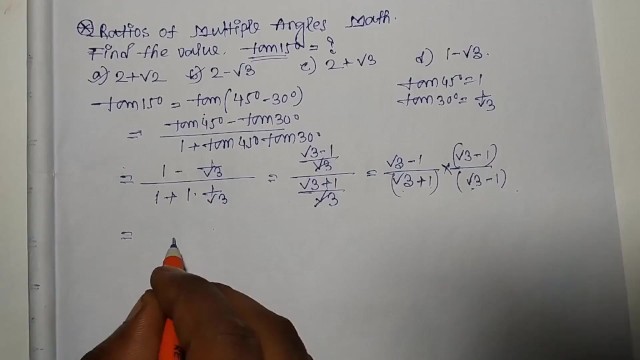 ⊛ Ratios of Multiple Angles Math.
Find the value. tan15° = ?
a) 2+√2 b) 2-√3 c) 2+√3 d) 1-√3.
tan15° = tan(45°-30°)
tan45° = 1
tan30° = 1/√3
= (tan45° - tan30°)/(1+tan45° tan30°)
= (1 - 1/√3)/(1 + 1·1/√3) = ((√3-1)/√3)/((√3+1)/√3) = (√3-1)/(√3+1) × (√3-1)/(√3-1)
=